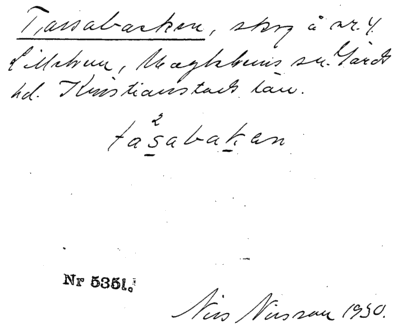 Tassabacken, skog å nr. 4
Lillehem, Maglehems sn. Gärds
hd. Kristianstads län.
2
tasabakan
Nr 5351.
Nils Nilsson 1930.